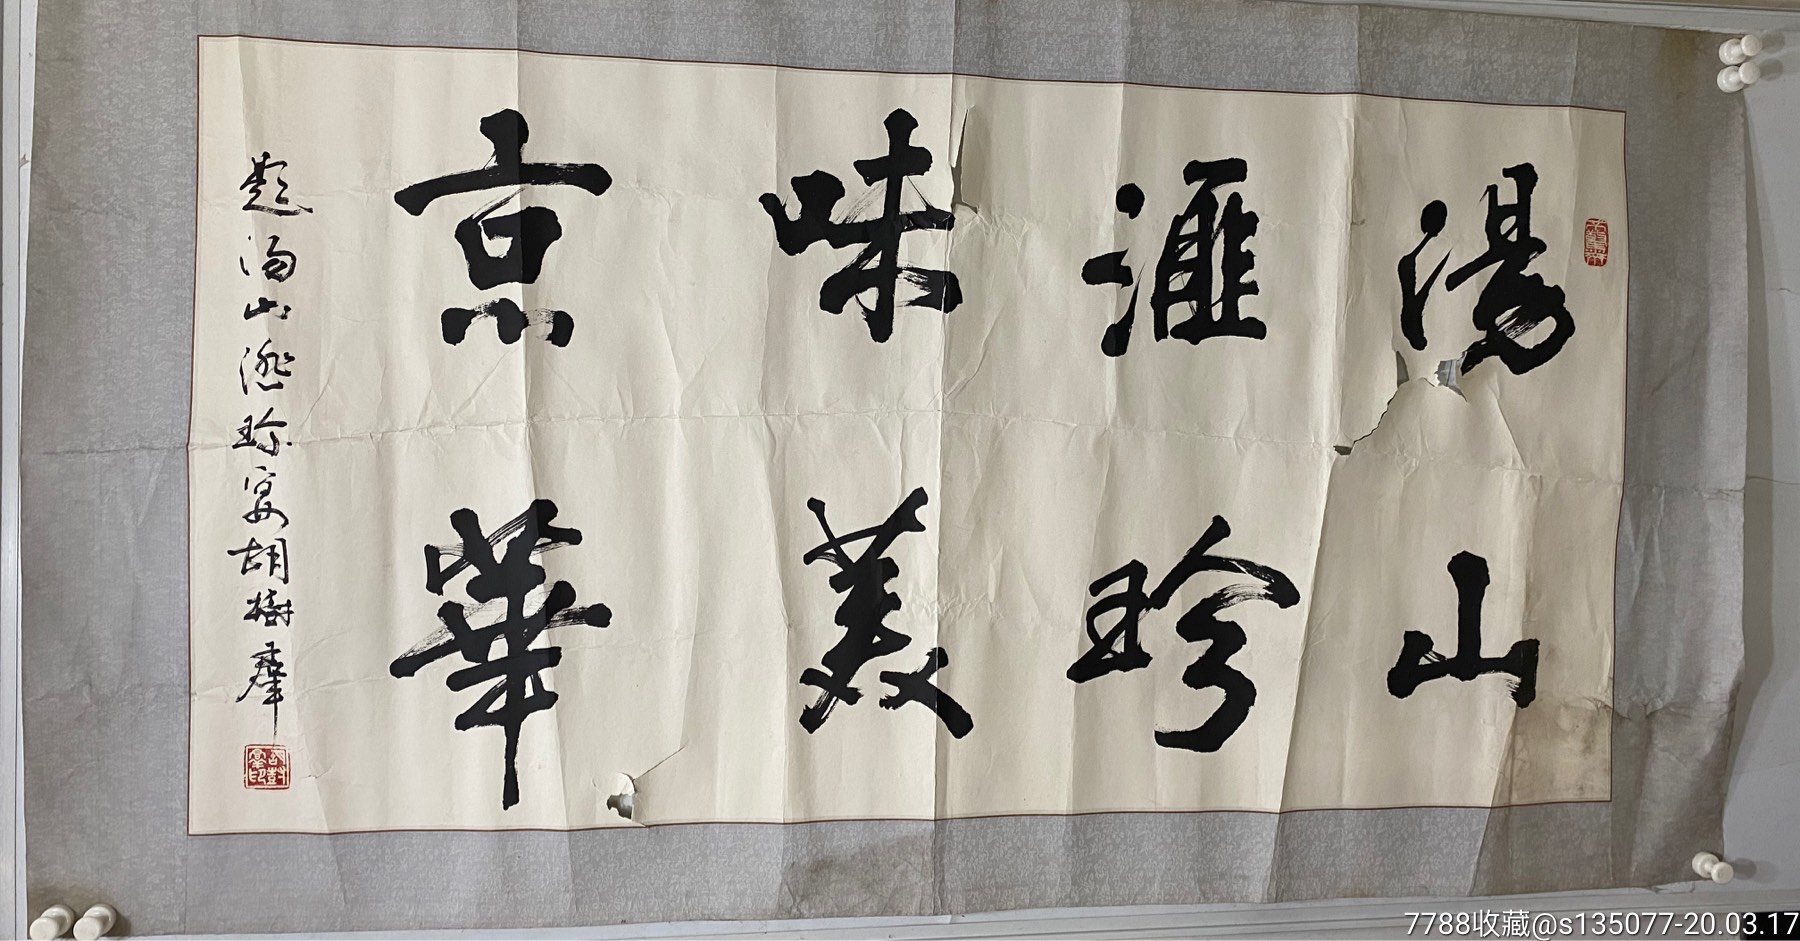 湯山
滙珍
味美
京華
題湯山滙珍宴胡樹羣
7788收藏@s135077-20.03.17